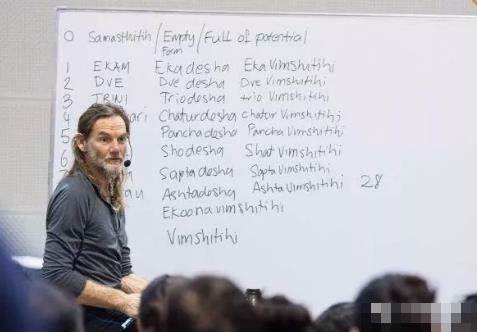 0 Samasthitih / Empty Form / Full of potential
1 EKAM Ekadesha Eka Vimshitihi
2 DVE Dve desha Dve Vimshitihi
3 TRINI Triodesha trio Vimshitihi
4 ari Chaturdesha chatur Vimshitihi
5 Panchadesha Pancha Vimshitihi
6 Shodesha Shat Vimshitihi
7 Saptadesha Sapta Vimshitihi
au Ashtadesha Ashta Vimshitihi 28
Ekoonavimshitihi
Vimshitihi